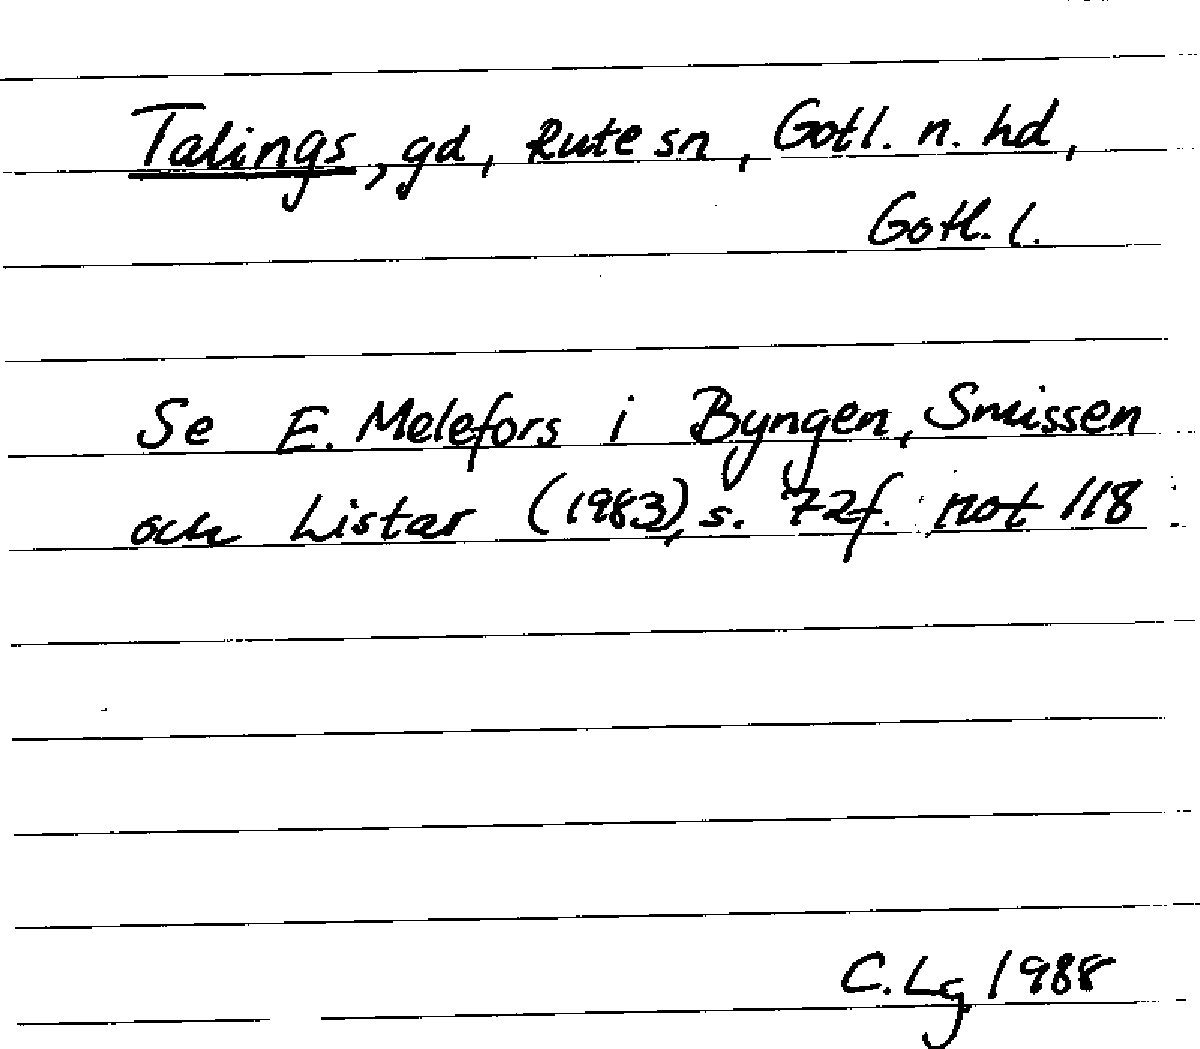 Talings, gd, Rute sn, Gotl. n. hd,
Gotl. l.
Se E. Melefors i Byngen, Smissen
och Listar (1983), s. 72f. not 118
C. Lg 1988